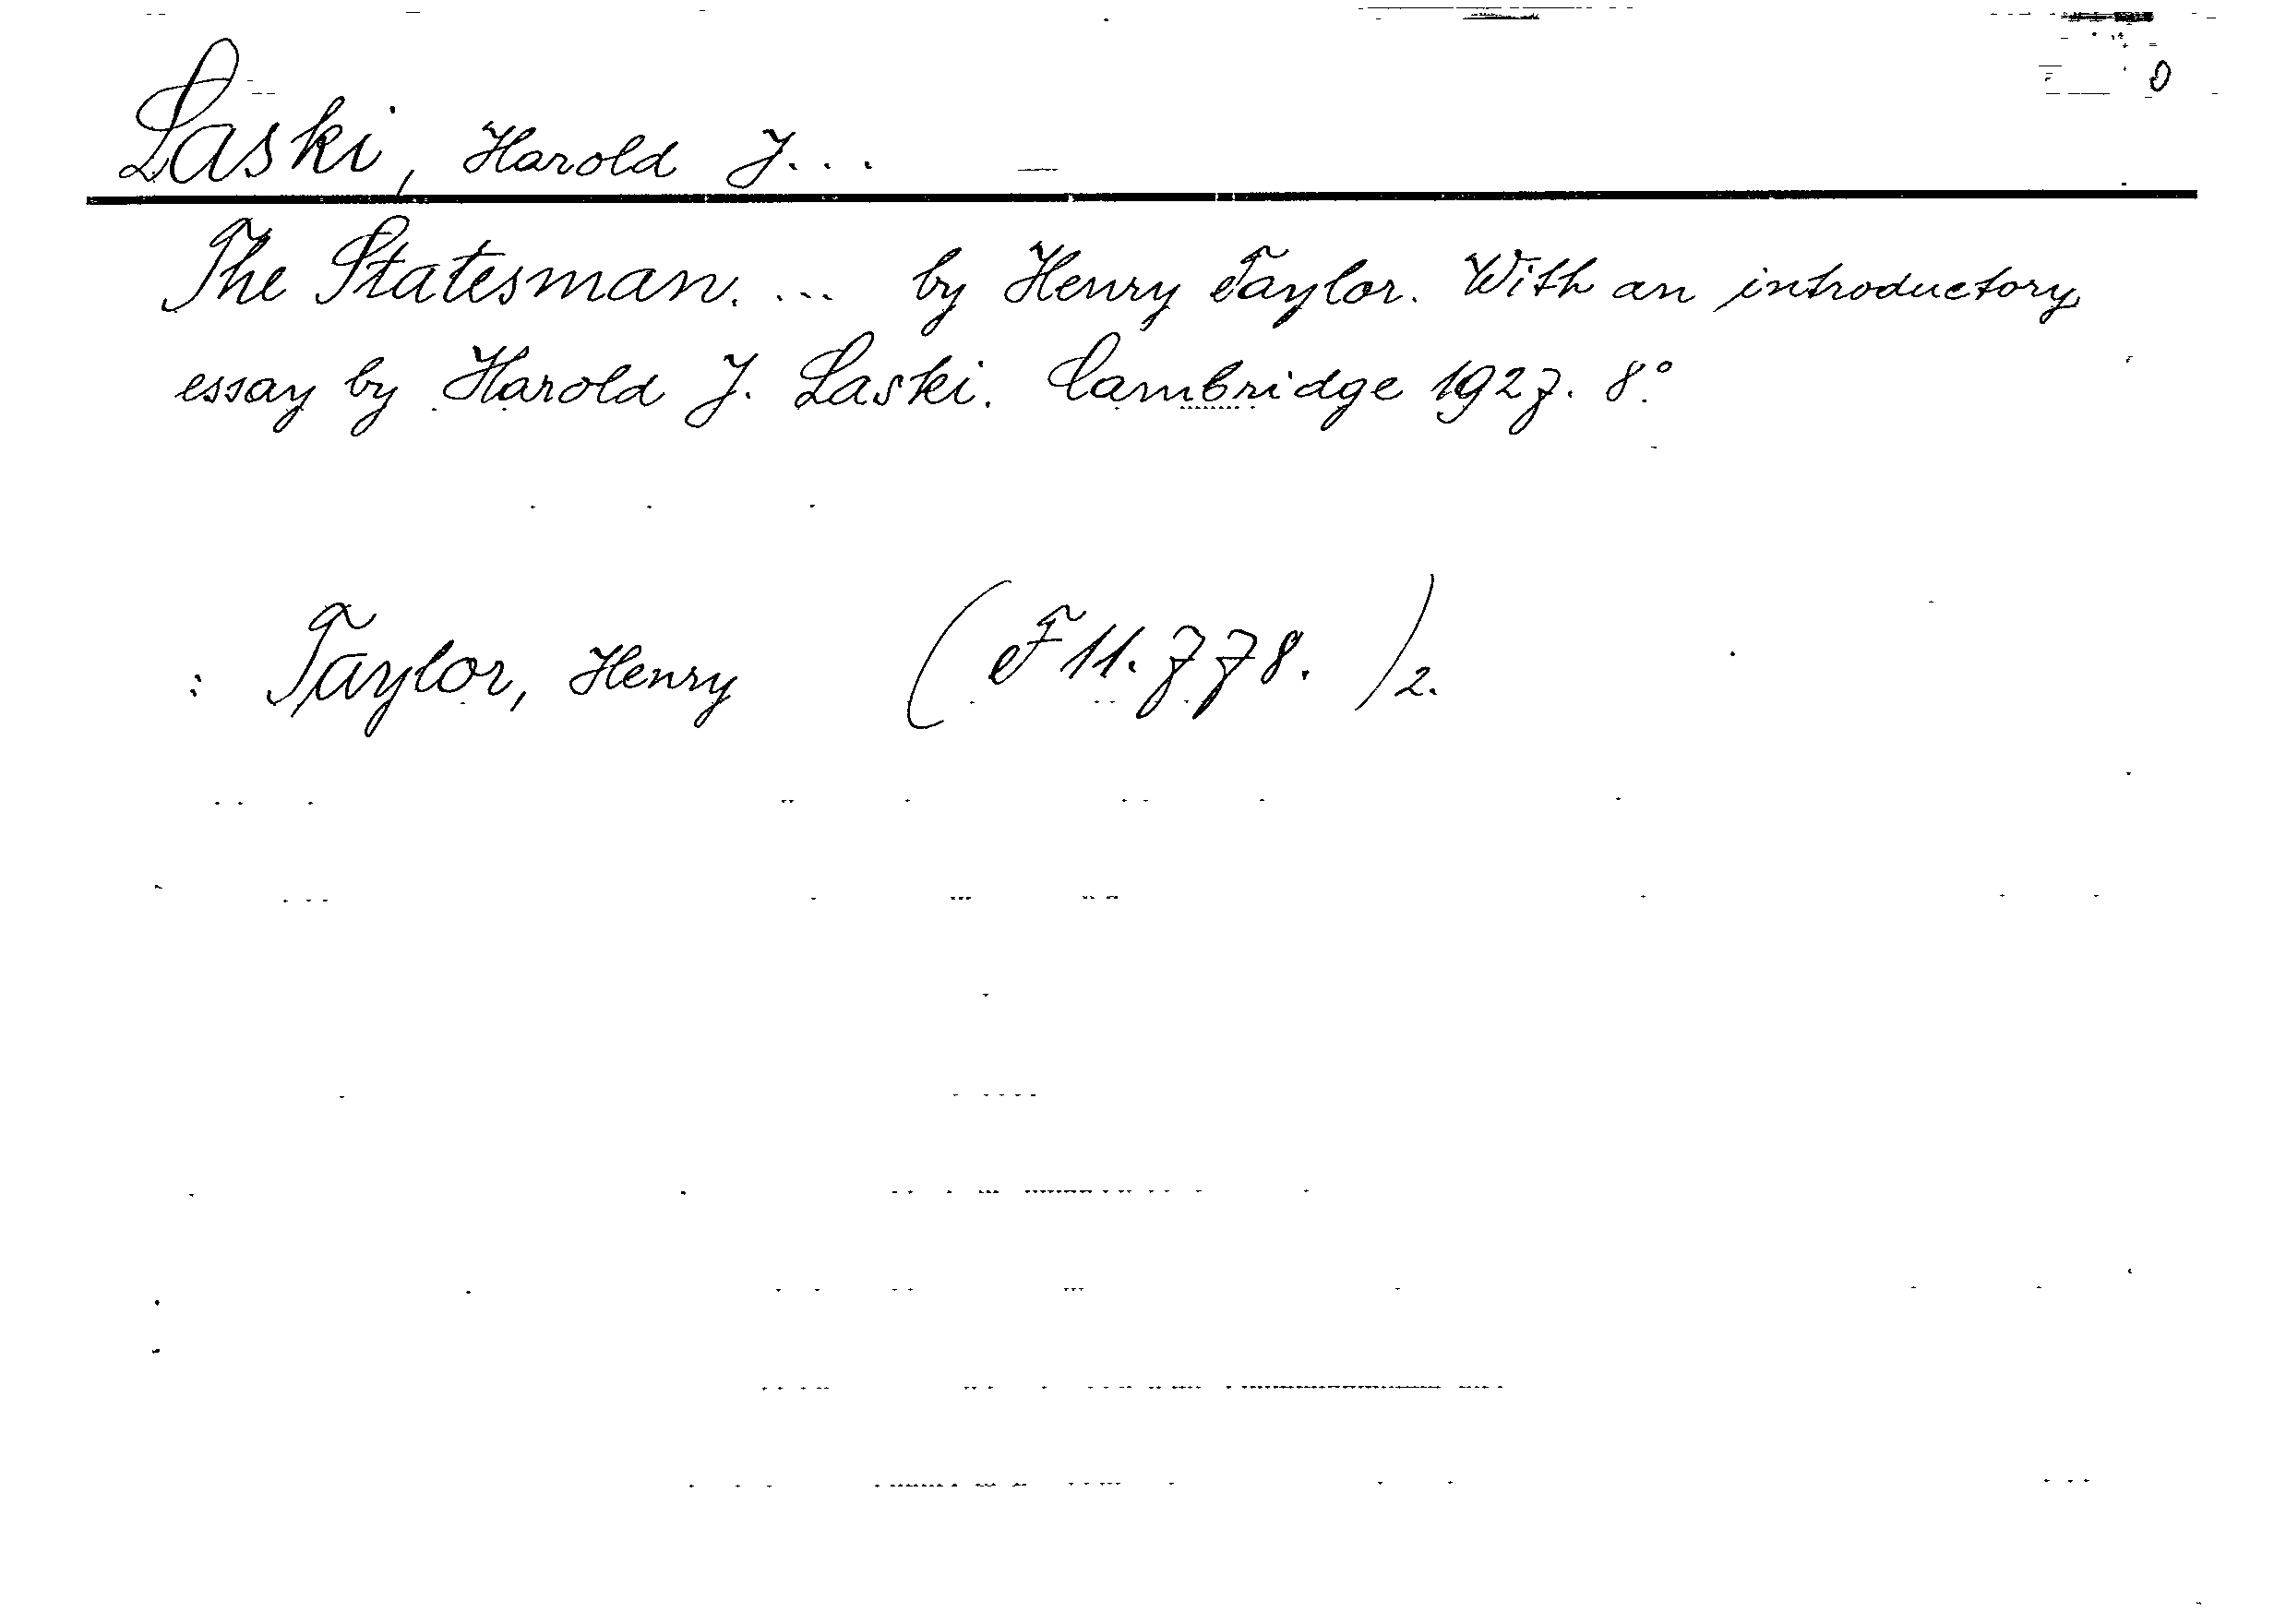 0
Laski, Harold J...
The Statesman. ... by Henry Taylor. With an introductory
essay by Harold J. Laski. Cambridge 1927. 8°.
: Taylor, Henry (F 11.778.)2.